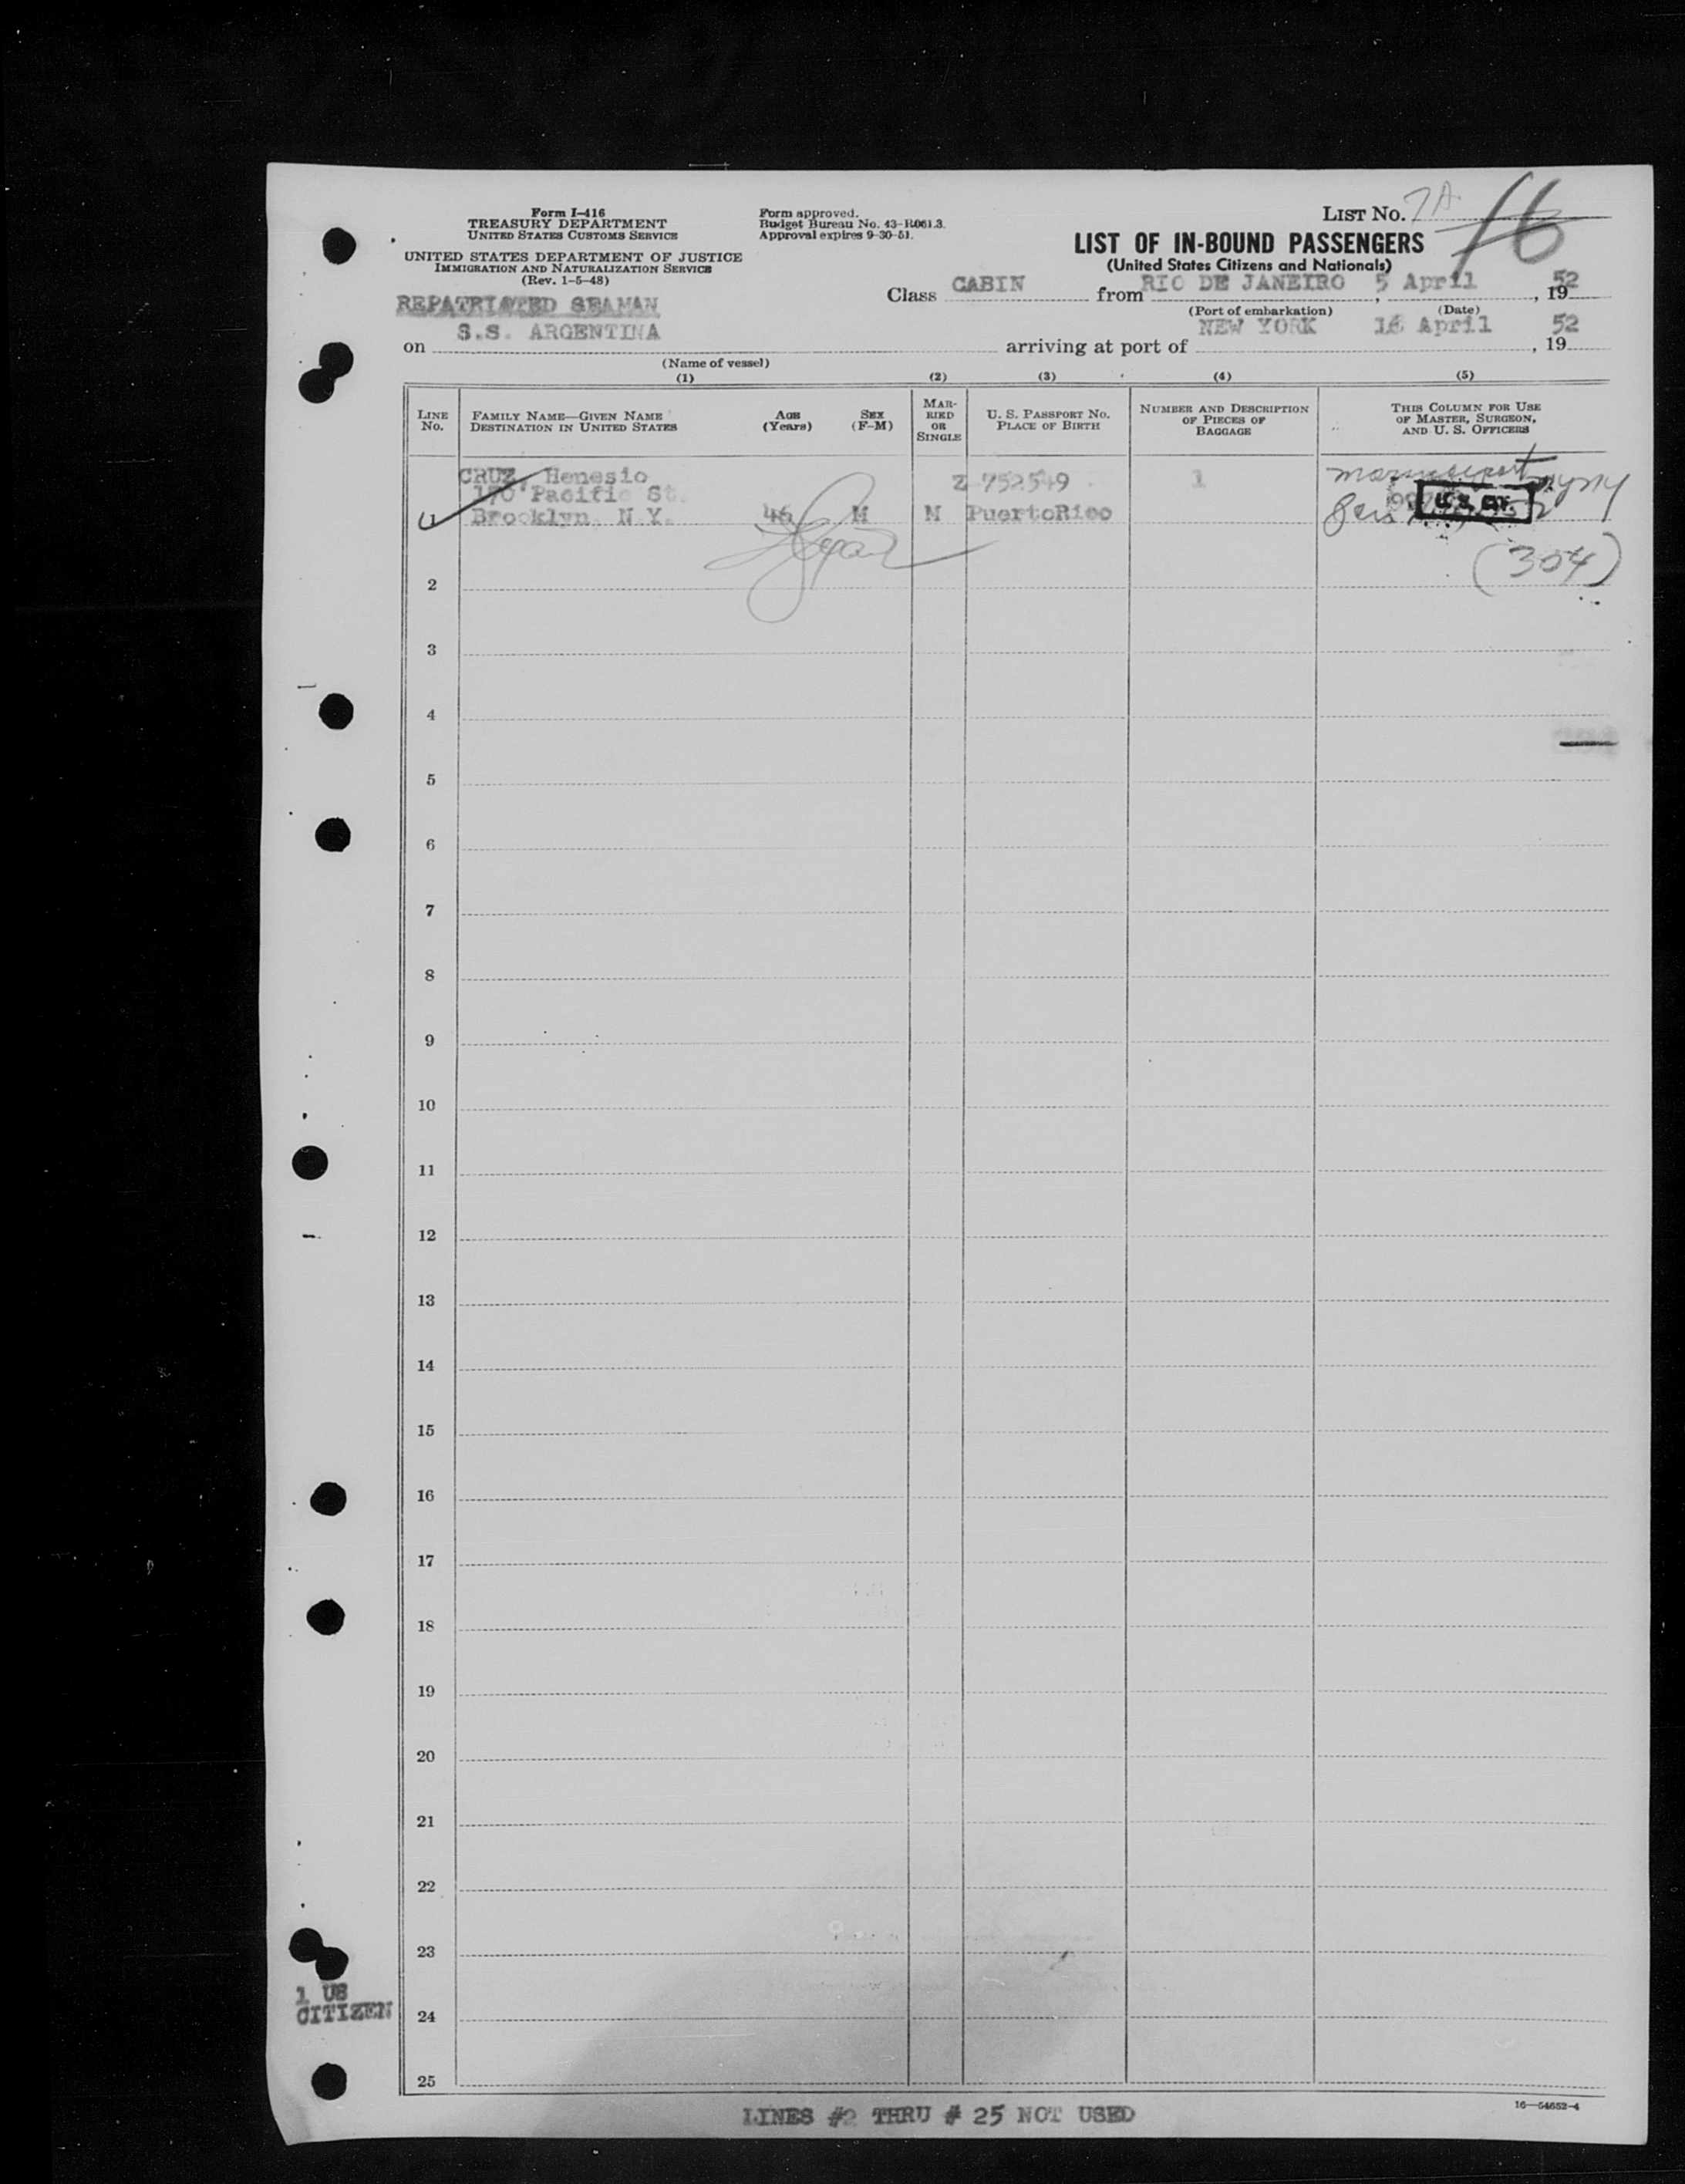 Form I-416
TREASURY DEPARTMENT
UNITED STATES CUSTOMS SERVICE
UNITED STATES DEPARTMENT OF JUSTICE
IMMIGRATION AND NATURALIZATION SERVICE
(Rev. 1-5-48)
Form approved.
Budget Bureau No. 43-R061.3.
Approval expires 9-30-51.
LIST NO. 7A 16
LIST OF IN-BOUND PASSENGERS
(United States Citizens and Nationals)
REPATRIATED SEAMAN
Class CABIN from RIO DE JANEIRO, 5 April, 1952
(Port of embarkation) (Date)
on S.S. ARGENTINA arriving at port of NEW YORK 16 April, 1952
(Name of vessel)
(1) (2) (3) (4) (5)
LINE NO.
FAMILY NAME—GIVEN NAME
DESTINATION IN UNITED STATES
AGE (Years)
SEX (F-M)
MARRIED OR SINGLE
U. S. PASSPORT NO.
PLACE OF BIRTH
NUMBER AND DESCRIPTION OF PIECES OF BAGGAGE
THIS COLUMN FOR USE OF MASTER, SURGEON, AND U. S. OFFICERS
CRUZ, Henesio Z 752549 1
170 Pacific St.
1 Brooklyn, N.Y. 46 M M PuertoRico U.S. CIT.
(304)
2
3
4
5
6
7
8
9
10
11
12
13
14
15
16
17
18
19
20
21
22
23
1 US
CITIZEN
24
25
LINES #2 THRU # 25 NOT USED
16—54652-4